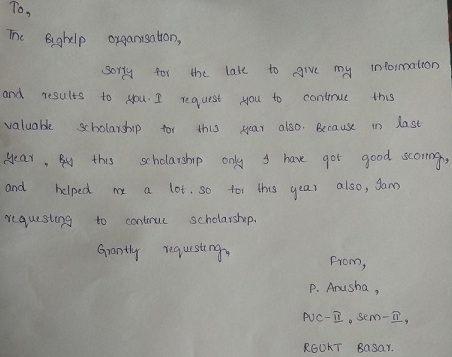 To,
The Bighelp organisation,
Sorry for the late to give my information
and results to you. I request you to continue this
valuable scholarship for this year also. Because in last
year, By this scholarship only I have got good scoring,
and helped me a lot. so for this year also, Iam
requesting to continue scholarship.
Grantly requesting,
From,
P. Anusha,
PUC-II, Sem-II,
RGUKT Basar.